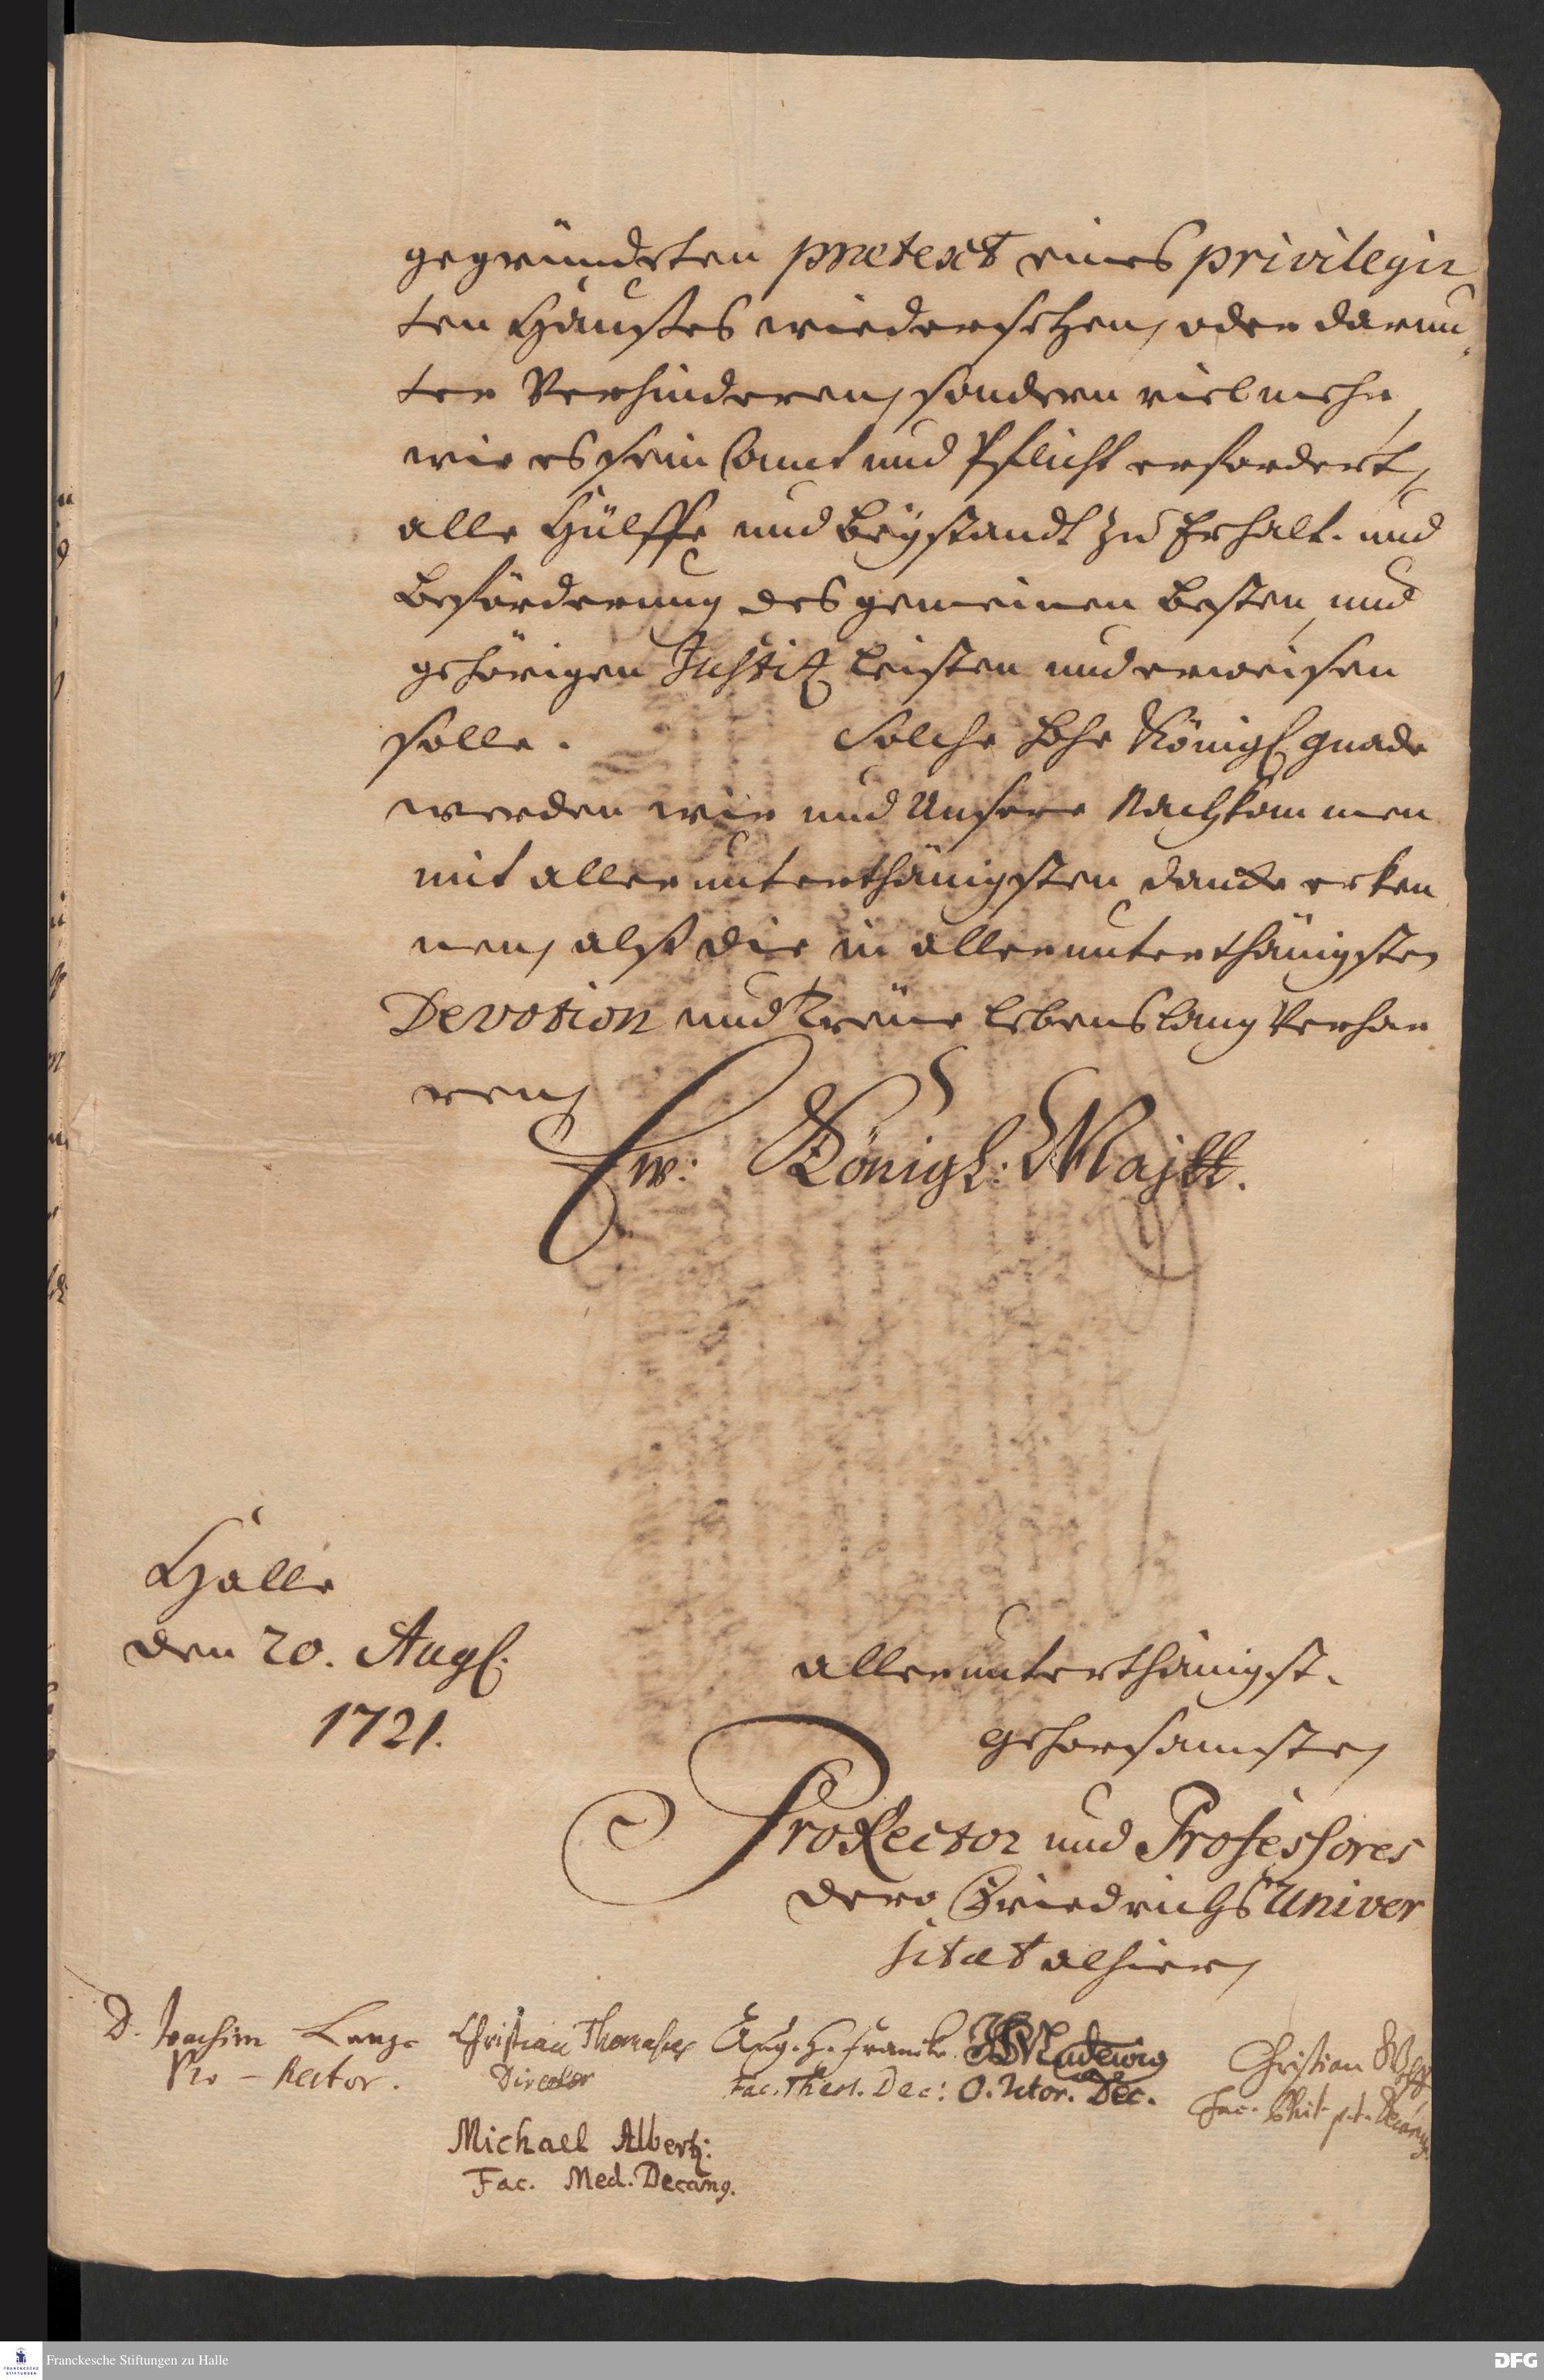 gegründeten prætext eines privilegir
ten Haußes wiedersetzen, oder darun-
ter Verhinderen, sondern vielmehr,
wie es sein Amt und Pflicht erfordert,
alle Hülffe und beystandt zu Erhalt- und
beförderung des gemeinen besten, und
gehörigen Justitz leisten und erweisen
solle. Solche hohe Königl gnade
werden wir und Unsere Nachkommen
mit allerunterthänigsten dancke erken
nen, alß die in allerunterthänigsten
Devotion und Treüe lebenslang Verhar
ren,
Ew: Königl: Majtt.
Halle
den 20. Aug.
1721.
allerunterthänigst-
gehorsamste,
ProRector und Professores
dero Friedrichs Univer
sitæt alhier,
D. Joachim Lange
Pro-Rector.
Christian Thomasius
Director
Aug. H. Francke
Fac. Theol. Dec:
Ludewig
Dec.
Christian Wolff
Fac. Phil. p.t. Decanus
Michael Alberti:
Fac. Med. Decanus.
Franckesche Stiftungen zu Halle
FRANCKESCHE
STIFTUNGEN
DFG